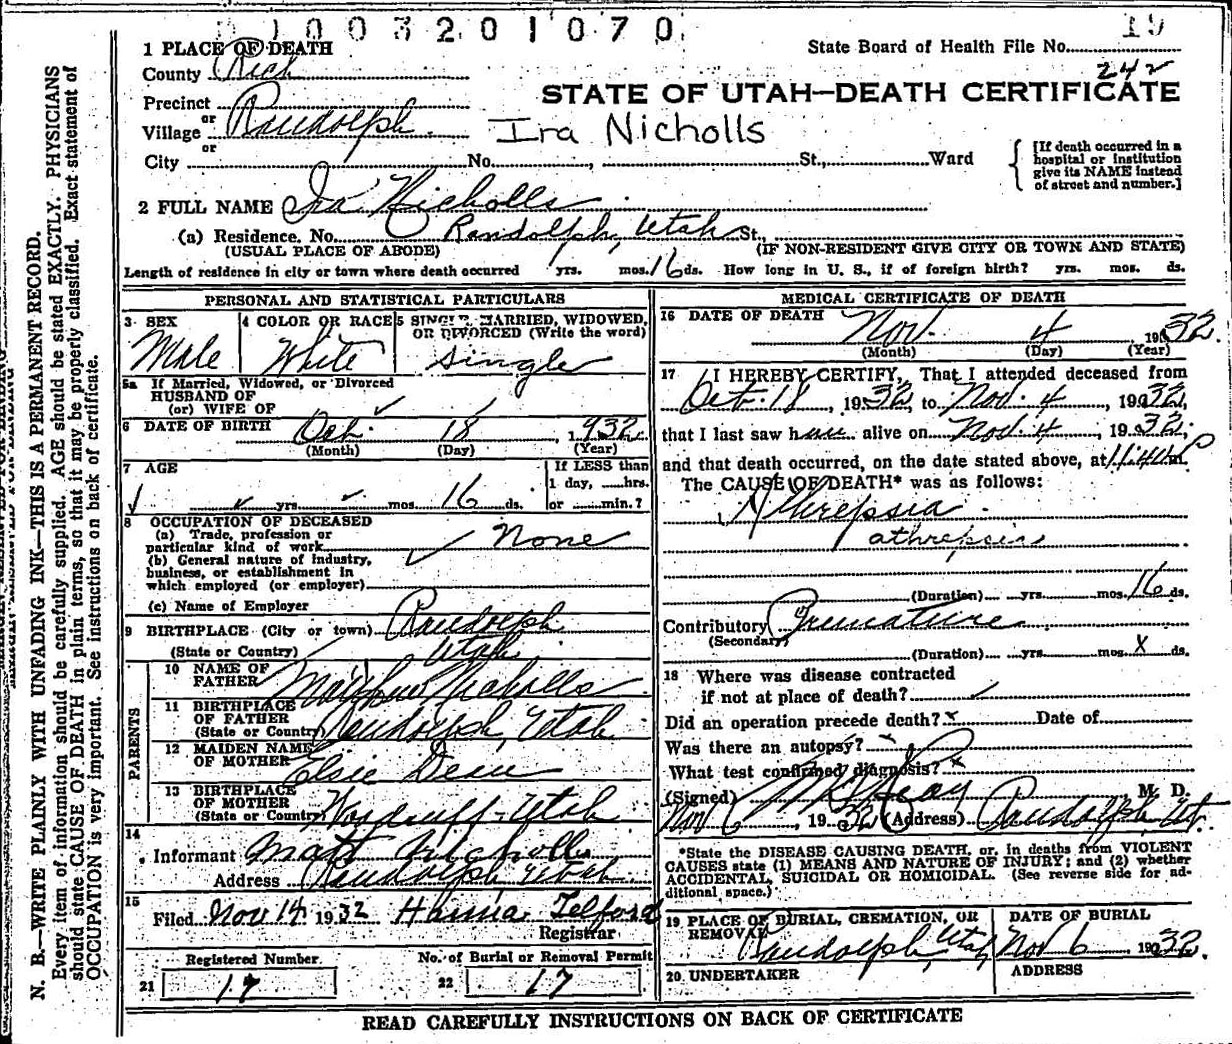 1003201070 19
1 PLACE OF DEATH State Board of Health File No.
County Rich 242
Precinct STATE OF UTAH—DEATH CERTIFICATE
or
Village Randolph Ira Nicholls
or
City No. , St., Ward
[If death occurred in a hospital or institution give its NAME instead of street and number.]
2 FULL NAME Ira Nicholls
(a) Residence. No. Randolph, Utah St.,
(USUAL PLACE OF ABODE) (IF NON-RESIDENT GIVE CITY OR TOWN AND STATE)
Length of residence in city or town where death occurred yrs. mos. 16 ds. How long in U. S., if of foreign birth? yrs. mos. ds.
PERSONAL AND STATISTICAL PARTICULARS
3 SEX
Male
4 COLOR OR RACE
White
5 SINGLE, MARRIED, WIDOWED,
OR DIVORCED (Write the word)
Single
5a If Married, Widowed, or Divorced
HUSBAND OF
(or) WIFE OF
6 DATE OF BIRTH Oct. 18, 1932
(Month) (Day) (Year)
7 AGE
yrs. mos. 16 ds.
If LESS than
1 day, hrs.
or min.?
8 OCCUPATION OF DECEASED
(a) Trade, profession or
particular kind of work None
(b) General nature of industry,
business, or establishment in
which employed (or employer)
(c) Name of Employer
9 BIRTHPLACE (City or town) Randolph
(State or Country) Utah
PARENTS
10 NAME OF
FATHER Matthew Nicholls
11 BIRTHPLACE
OF FATHER
(State or Country) Randolph, Utah
12 MAIDEN NAME
OF MOTHER Elsie Dean
13 BIRTHPLACE
OF MOTHER
(State or Country) Woodruff - Utah
14
Informant Matt Nicholls
Address Randolph Utah
15
Filed Nov 14 1932 Telford
Registrar
Registered Number. No. of Burial or Removal Permit
21 17 22 17
MEDICAL CERTIFICATE OF DEATH
16 DATE OF DEATH Nov. 4 1932.
(Month) (Day) (Year)
17 I HEREBY CERTIFY, That I attended deceased from
Oct. 18, 1932, to Nov. 4, 1932,
that I last saw h alive on Nov. 4, 1932;
and that death occurred, on the date stated above, at m.
The CAUSE OF DEATH* was as follows:
Athrepsia
athrepsia
(Duration) yrs. mos. 16 ds.
Contributory Premature
(Secondary)
(Duration) yrs. mos. x ds.
18 Where was disease contracted
if not at place of death?
Did an operation precede death? x Date of
Was there an autopsy?
What test confirmed diagnosis? x
(Signed) , M. D.
Nov 6, 1932 (Address) Randolph Ut.
*State the DISEASE CAUSING DEATH, or, in deaths from VIOLENT
CAUSES state (1) MEANS AND NATURE OF INJURY; and (2) whether
ACCIDENTAL, SUICIDAL OR HOMICIDAL. (See reverse side for ad-
ditional space.)
19 PLACE OF BURIAL, CREMATION, OR
REMOVAL
Randolph, Utah
DATE OF BURIAL
Nov 6 1932.
20. UNDERTAKER ADDRESS
READ CAREFULLY INSTRUCTIONS ON BACK OF CERTIFICATE
N. B.—WRITE PLAINLY WITH UNFADING INK—THIS IS A PERMANENT RECORD.
Every item of information should be carefully supplied. AGE should be stated EXACTLY. PHYSICIANS
should state CAUSE OF DEATH in plain terms, so that it may be properly classified. Exact statement of
OCCUPATION is very important. See instructions on back of certificate.